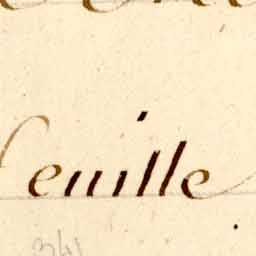 feuille
341